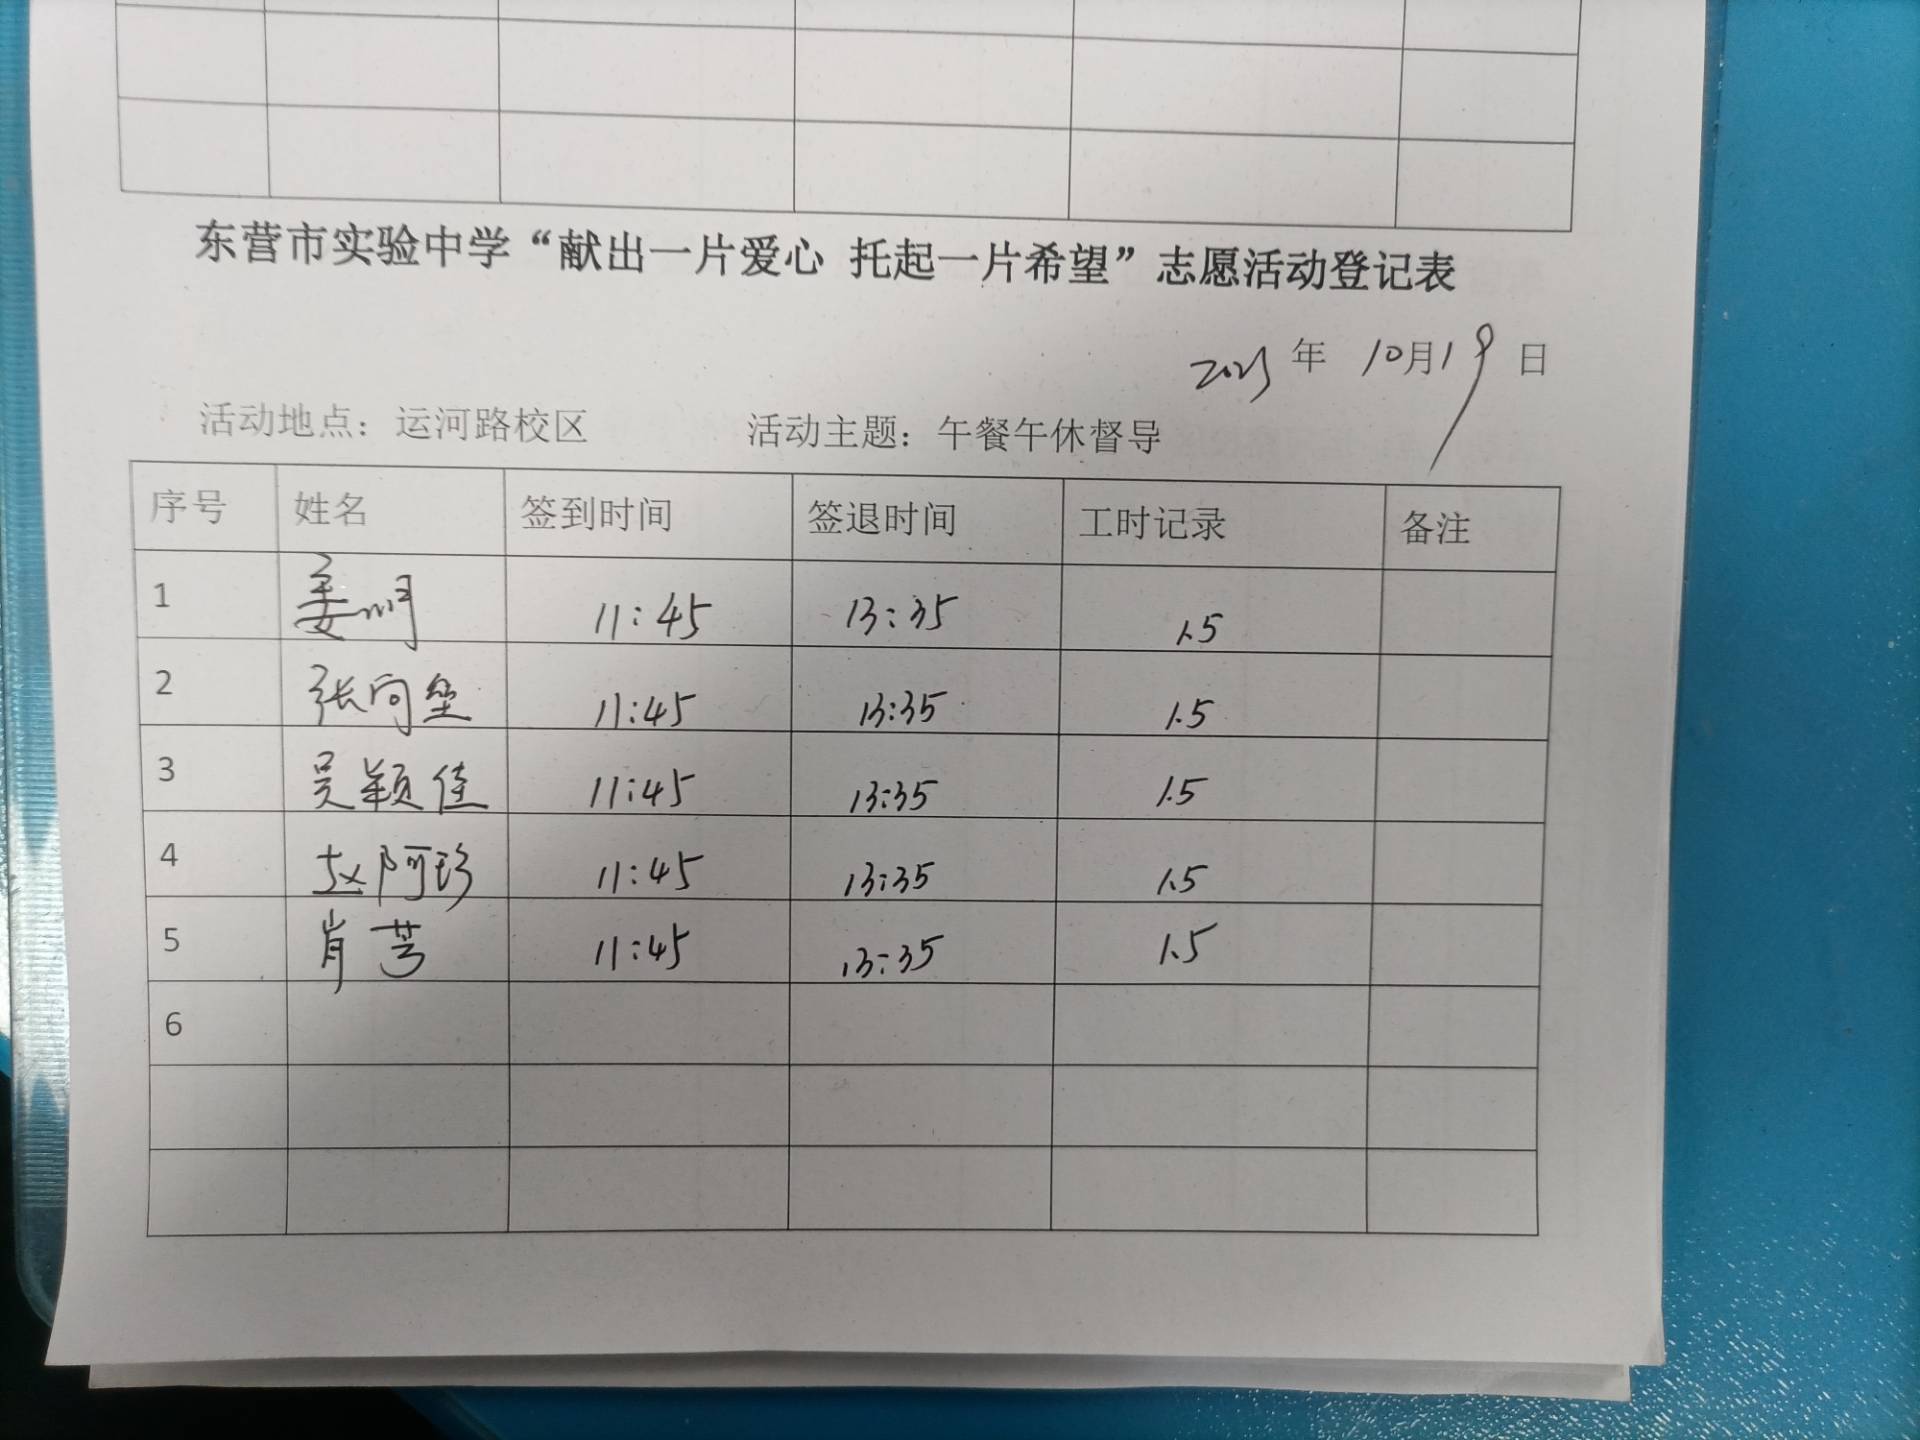 东营市实验中学“献出一片爱心 托起一片希望”志愿活动登记表
2023 年 10月19日
活动地点：运河路校区 活动主题：午餐午休督导
序号 姓名 签到时间 签退时间 工时记录 备注
1 姜 11:45 13:35 1.5
2 张向 11:45 13:35 1.5
3 吴颖佳 11:45 13:35 1.5
4 赵阿珍 11:45 13:35 1.5
5 肖 11:45 13:35 1.5
6